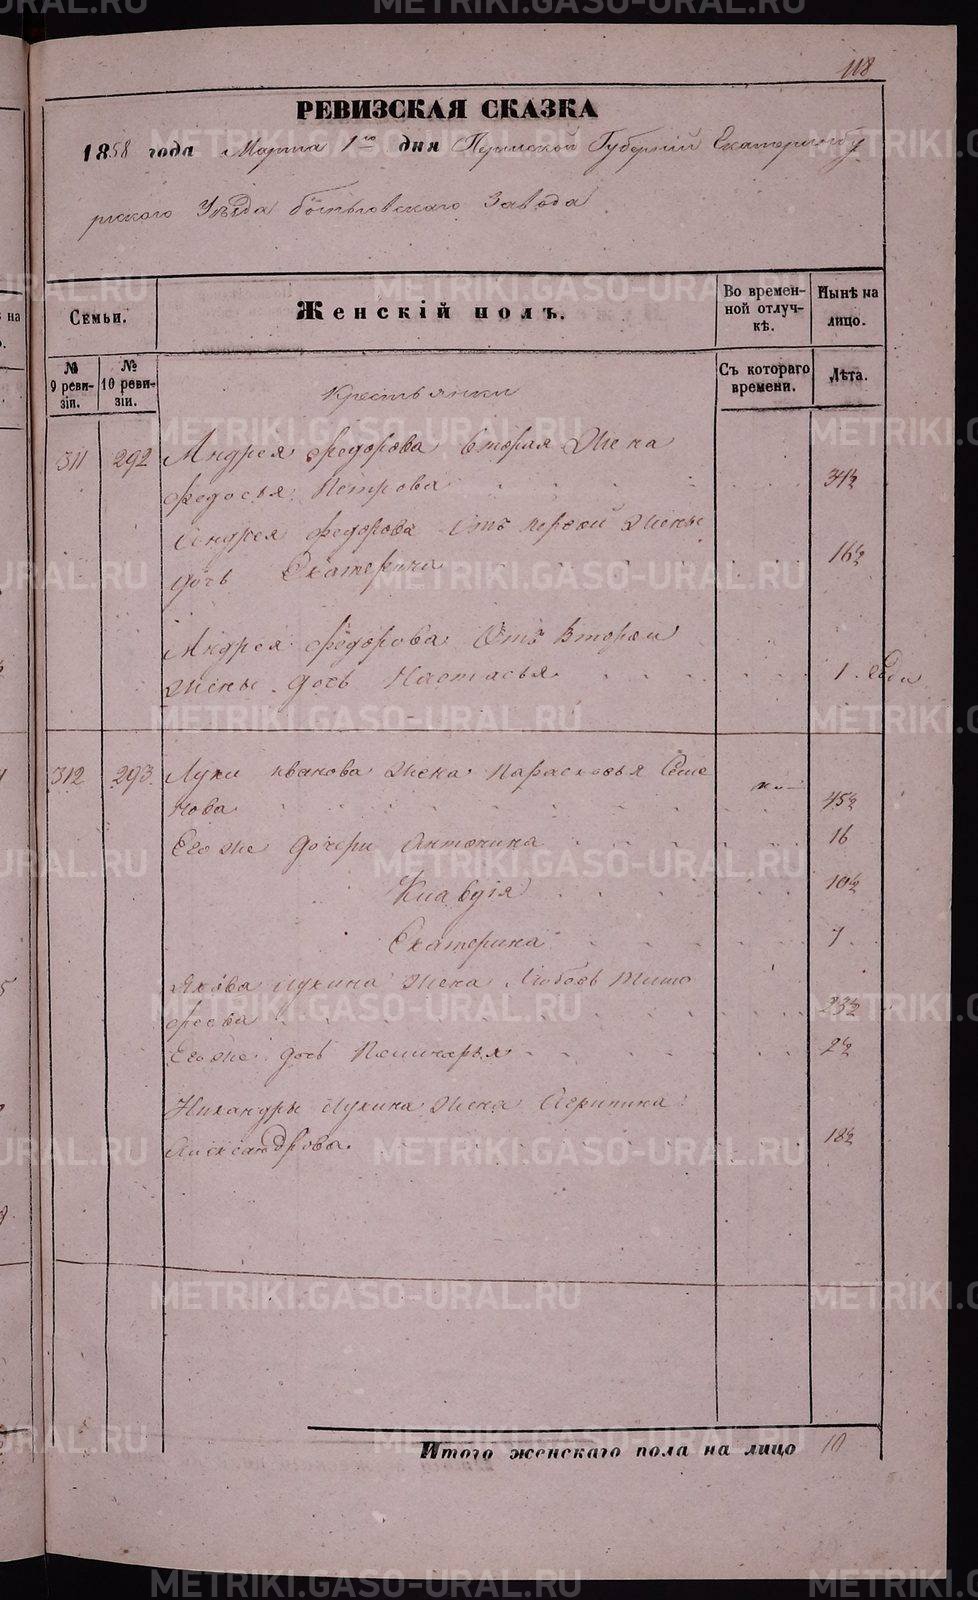 METRIKI.GASO-URAL.RU
118
РЕВИЗСКАЯ СКАЗКА
1858 года Марта 1го дня Пермской Губерніи Екатеринбу
ргского Уѣзда Завода
Семьи.
Женскій полъ.
Во времен-
ной отлуч-
кѣ.
Нынѣ на
лицо.
№
9 реви-
зіи.
№
10 реви-
зіи.
Съ котораго
времени.
Лѣта.
Крестьянки
311 292 Андрея Федорова Вторая Жена
Федосья Петрова 31½
Андрея Федорова Отъ первой Жены
дочь Екатерина 16½
Андрея Федорова Отъ Второй
Жены дочь Настасья 1
312 293 Луки Иванова Жена Парасковья Семе
нова 45½
Его же дочери Антонина 16
Клавдія 10½
Екатерина 7
Якова Лукина Жена Любовь Тимо
феева 23½
Его же дочь 2½
Никандры Лукина Жена Агрипина
Александрова 18½
Итого женскаго пола на лицо 10